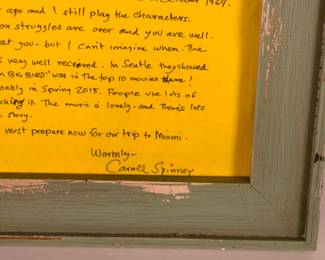 October 1969.
ago and I still play the characters.
or struggles are over and you are well.
eet you - but I can't imagine when. The
s very well received. In Seatle they showed
BIG BIRD" was in the top 10 movies there!
bably in Spring 2015. People use lots of
it. The music is lovely - and There's lots
story.
most prepare now for our trip to Miami.
Warmly -
Caroll Spinney